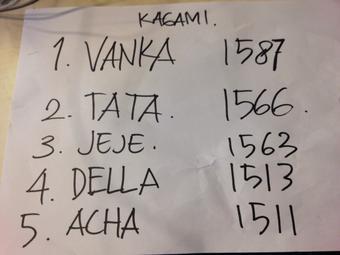 KAGAMI.
1. VANKA 1587
2. TATA. 1566.
3. JEJE. 1563
4. DELLA 1513
5. ACHA 1511